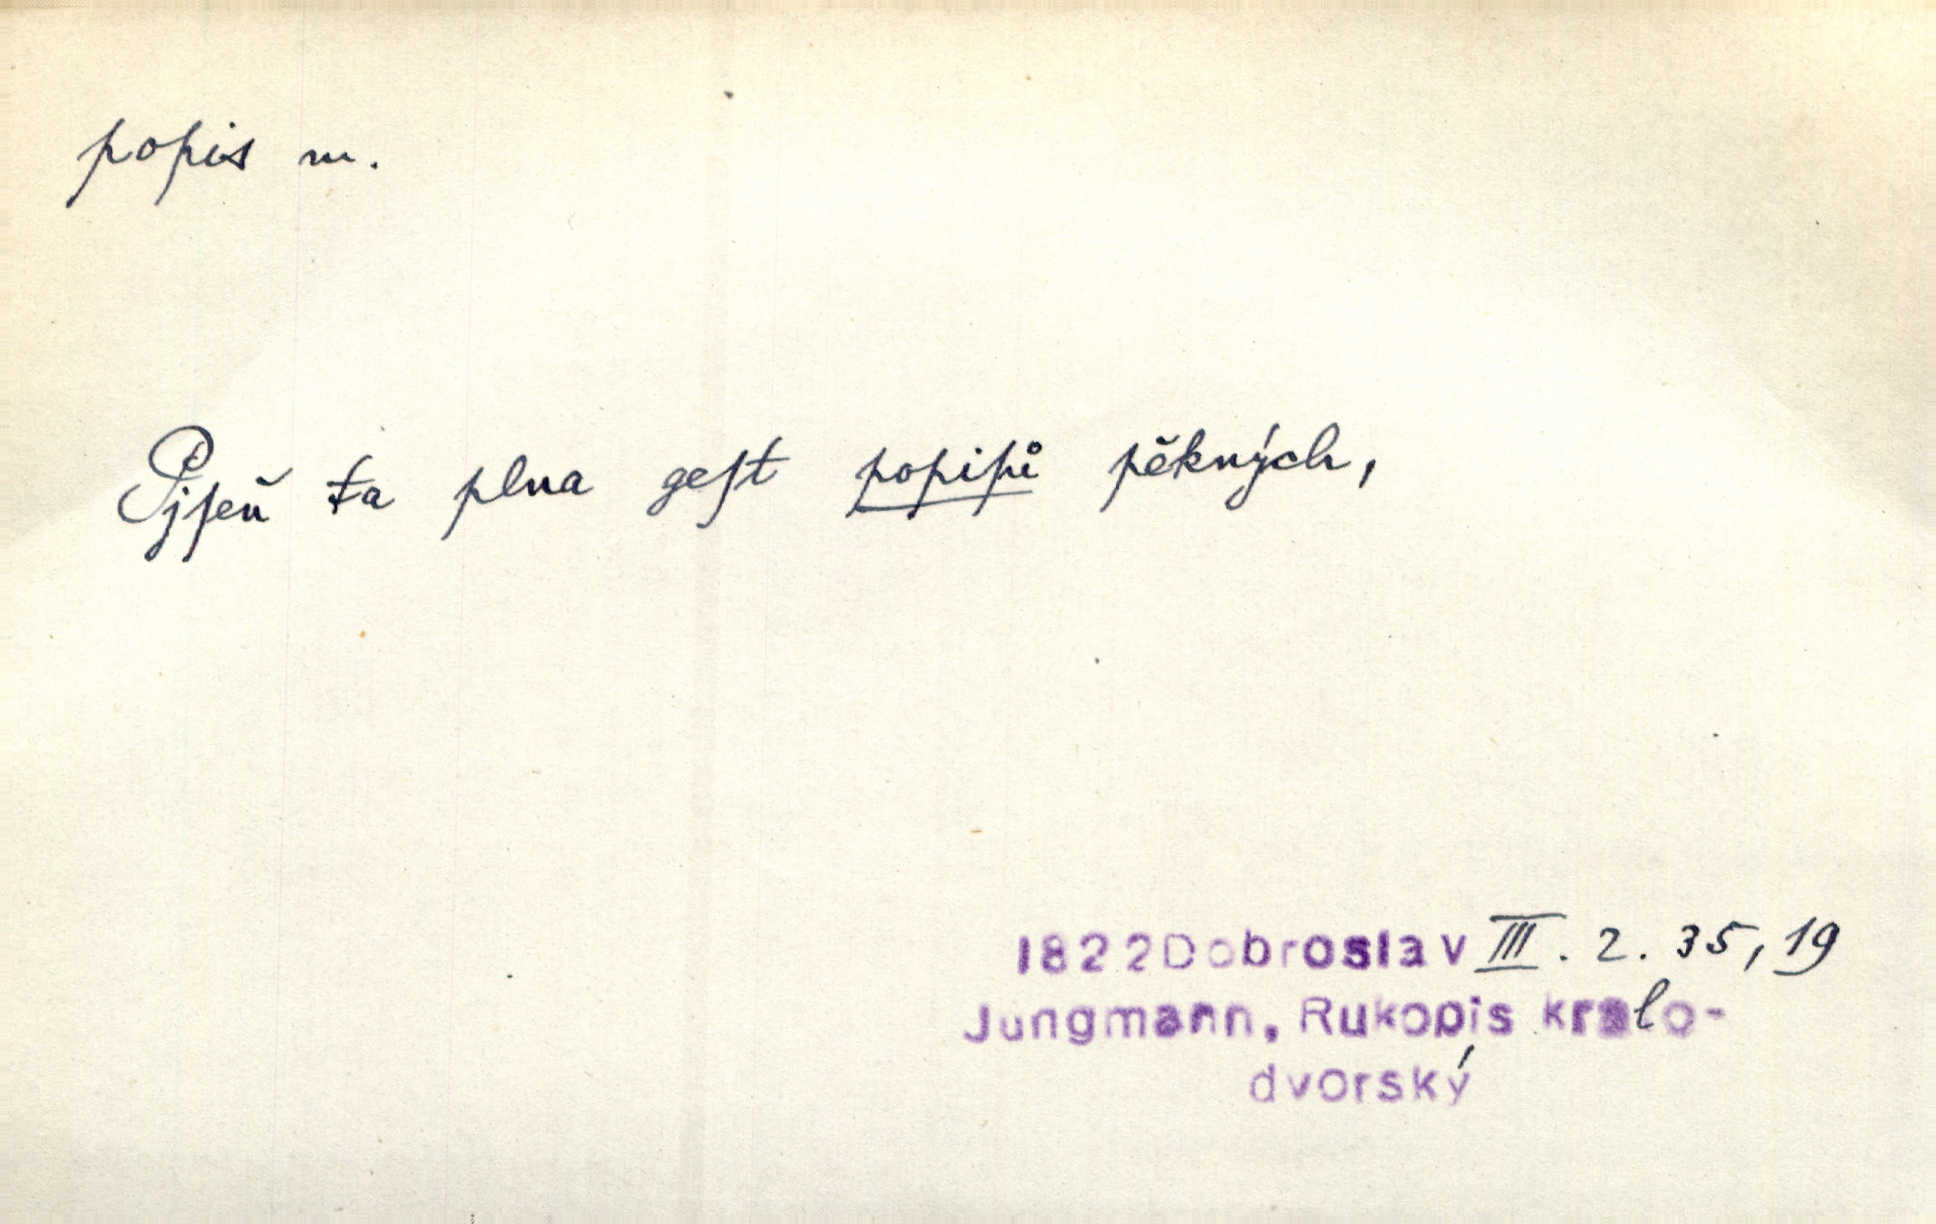 popis m.
Pjſeň ta plna geſt popiſů pěkných,
1822 Dobroslav III. 2. 35, 19
Jungmann, Rukopis kralo-
dvorský